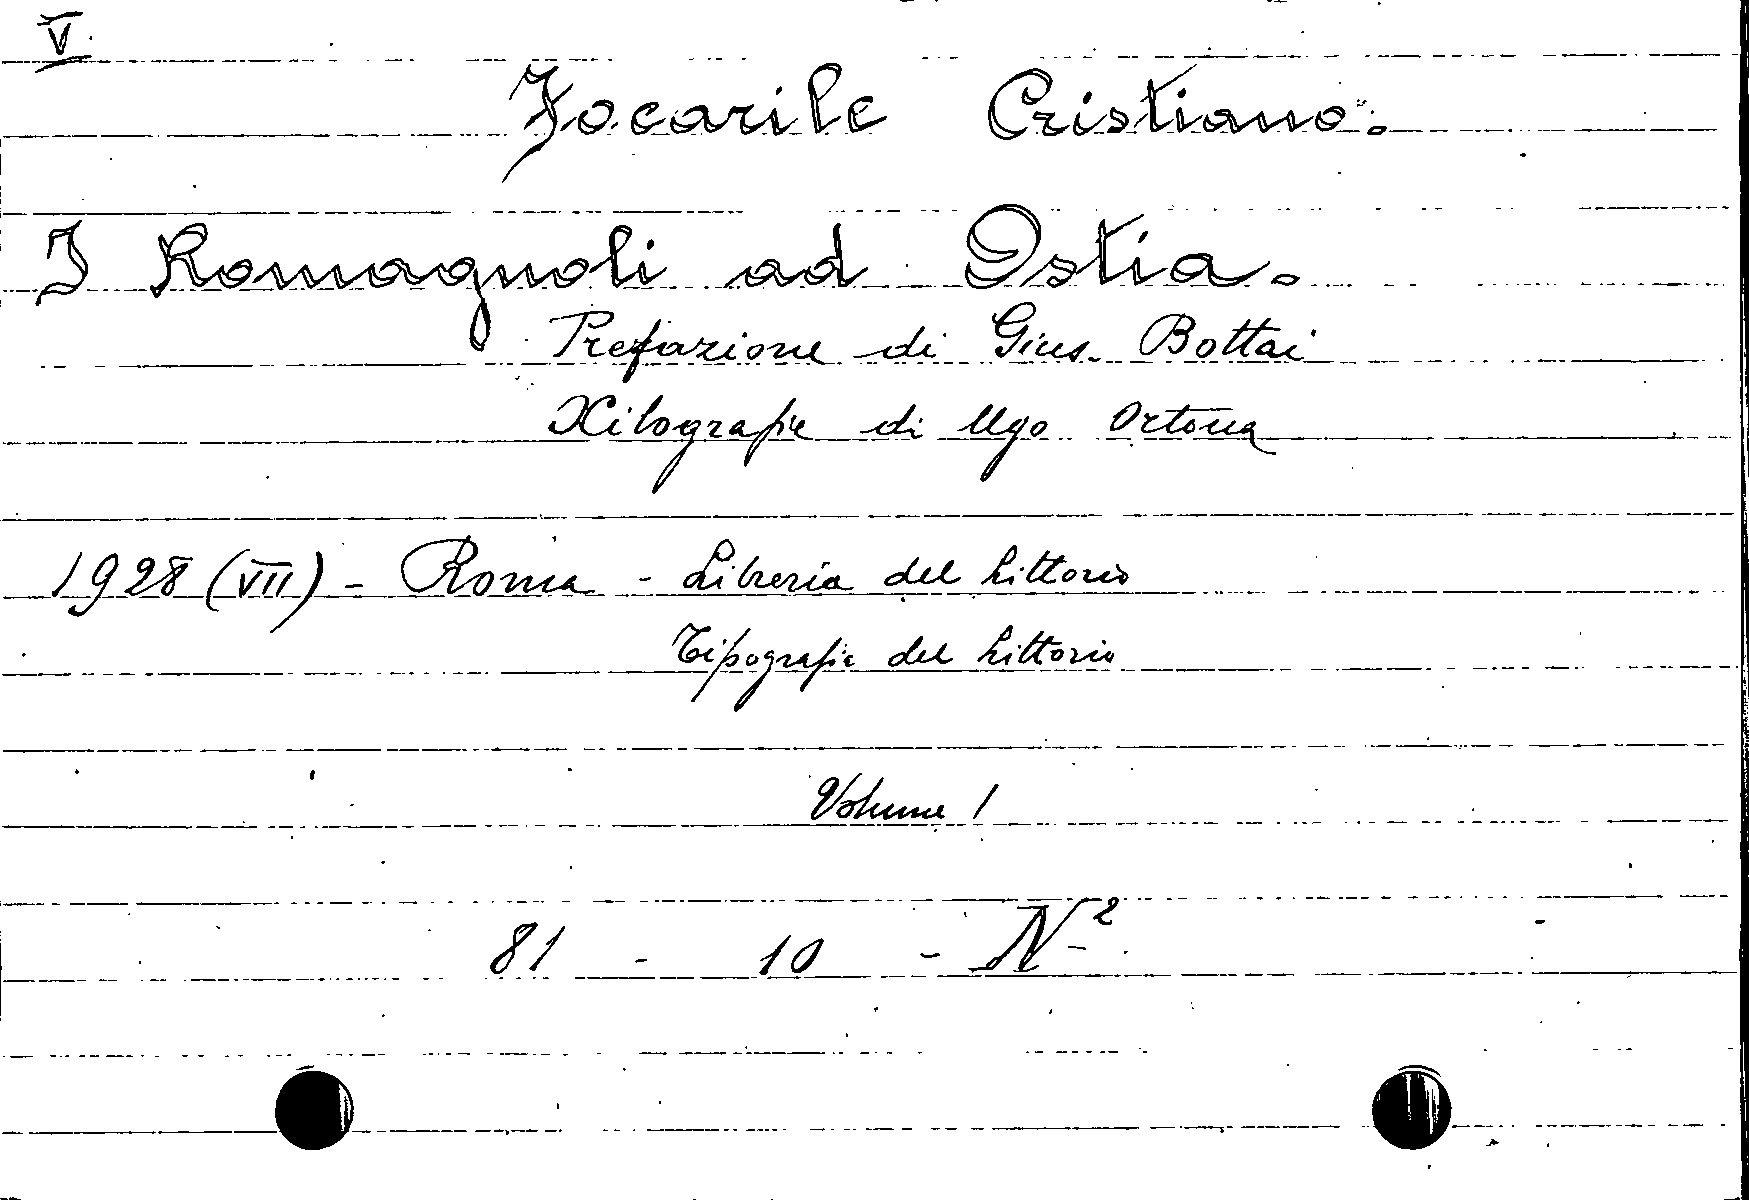 V.
Focarile Cristiano.
I Romagnoli ad Ostia.
Prefazione di Gius. Bottai
Xilografie di Ugo Ortona
1928 (VII) - Roma - Libreria del Littorio
Tipografia del Littorio
Volume 1
81 - 10 - N²